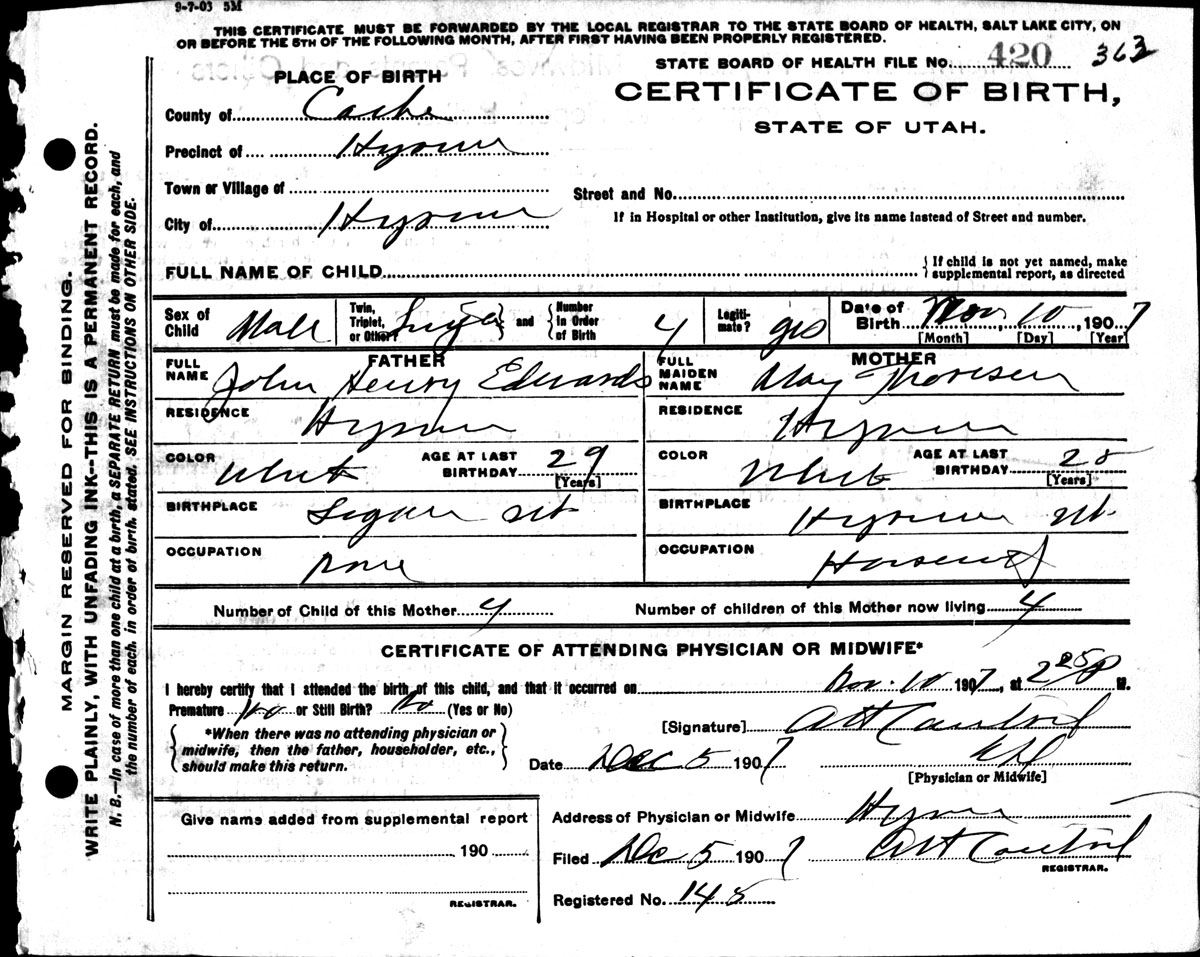 9-7-03 5M
THIS CERTIFICATE MUST BE FORWARDED BY THE LOCAL REGISTRAR TO THE STATE BOARD OF HEALTH, SALT LAKE CITY, ON
OR BEFORE THE 5TH OF THE FOLLOWING MONTH, AFTER FIRST HAVING BEEN PROPERLY REGISTERED.
STATE BOARD OF HEALTH FILE No. 420 363
PLACE OF BIRTH
CERTIFICATE OF BIRTH,
STATE OF UTAH.
County of Cache
Precinct of Hyrum
Town or Village of
Street and No.
City of Hyrum
If in Hospital or other Institution, give its name instead of Street and number.
FULL NAME OF CHILD
{ If child is not yet named, make
supplemental report, as directed
Sex of Child Male
Twin, Triplet, or Other? Single and { Number in Order of Birth 4
Legiti-mate? yes
Date of Birth Nov, 10, 1907
[Month] [Day] [Year]
FATHER
FULL NAME John Henry Edwards
MOTHER
FULL MAIDEN NAME May Thoresen
RESIDENCE Hyrum
RESIDENCE Hyrum
COLOR White AGE AT LAST BIRTHDAY 29 [Years]
COLOR White AGE AT LAST BIRTHDAY 28 [Years]
BIRTHPLACE Logan Ut
BIRTHPLACE Hyrum Ut.
OCCUPATION
OCCUPATION Housewf
Number of Child of this Mother 4
Number of children of this Mother now living 4
CERTIFICATE OF ATTENDING PHYSICIAN OR MIDWIFE*
I hereby certify that I attended the birth of this child, and that it occurred on Nov. 10 1907, at 2 25 P M.
Premature No or Still Birth? No (Yes or No)
{ *When there was no attending physician or
midwife, then the father, householder, etc.,
should make this return. }
[Signature]
Date Dec 5 1907
[Physician or Midwife]
Give name added from supplemental report
190
REGISTRAR.
Address of Physician or Midwife Hyrum
Filed Dec 5 1907
REGISTRAR.
Registered No. 145
MARGIN RESERVED FOR BINDING.
WRITE PLAINLY, WITH UNFADING INK--THIS IS A PERMANENT RECORD.
N. B.—In case of more than one child at a birth, a SEPARATE RETURN must be made for each, and
the number of each, in order of birth, stated. SEE INSTRUCTIONS ON OTHER SIDE.